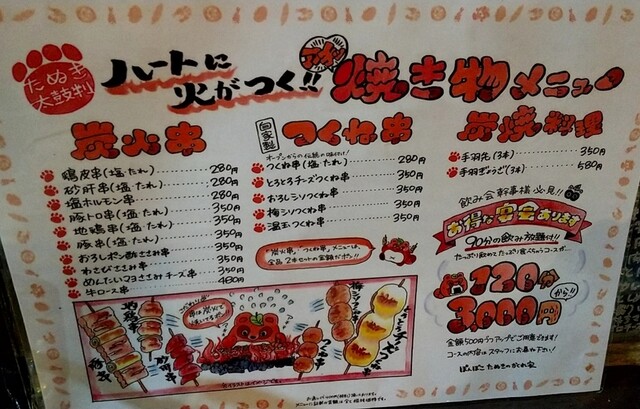 たぬき
太鼓判
ハートに
火がつく!!
焼き物メニュー
炭火串
鶏皮串(塩・たれ) 280円
砂肝串(塩・たれ) 280円
塩ホルモン串 280円
豚トロ串(塩・たれ) 350円
地鶏串(塩・たれ) 350円
豚串(塩・たれ) 350円
おろしポン酢ささみ串 350円
わさびささみ串 350円
めんたいマヨささみチーズ串 350円
牛ロース串 480円
自家製
つくね串
オープンからの伝統の味付け!
つくね串(塩・たれ) 280円
とろとろチーズつくね串 350円
おろしつくね串 350円
梅シソつくね串 350円
温玉つくね串 350円
「炭火串」、「つくね串」メニューは、
全品2本セットの金額だポン!!
炭焼料理
手羽先(3本) 350円
手羽ぎょうざ(3本) 580円
飲み会幹事様必見!!
お得な宴会あります
90分の飲み放題付!!
たっぷり飲めてたっぷり食べちゃうコースが…
120分
3,000円
から!!
金額500円づつアップでご用意できます!
コースの内容はスタッフにお尋ね下さい!
ぽんぽこたぬきのかくれ家
こだわり串
串は炭火で
焼いてるよ!
砂肝串
つくね串